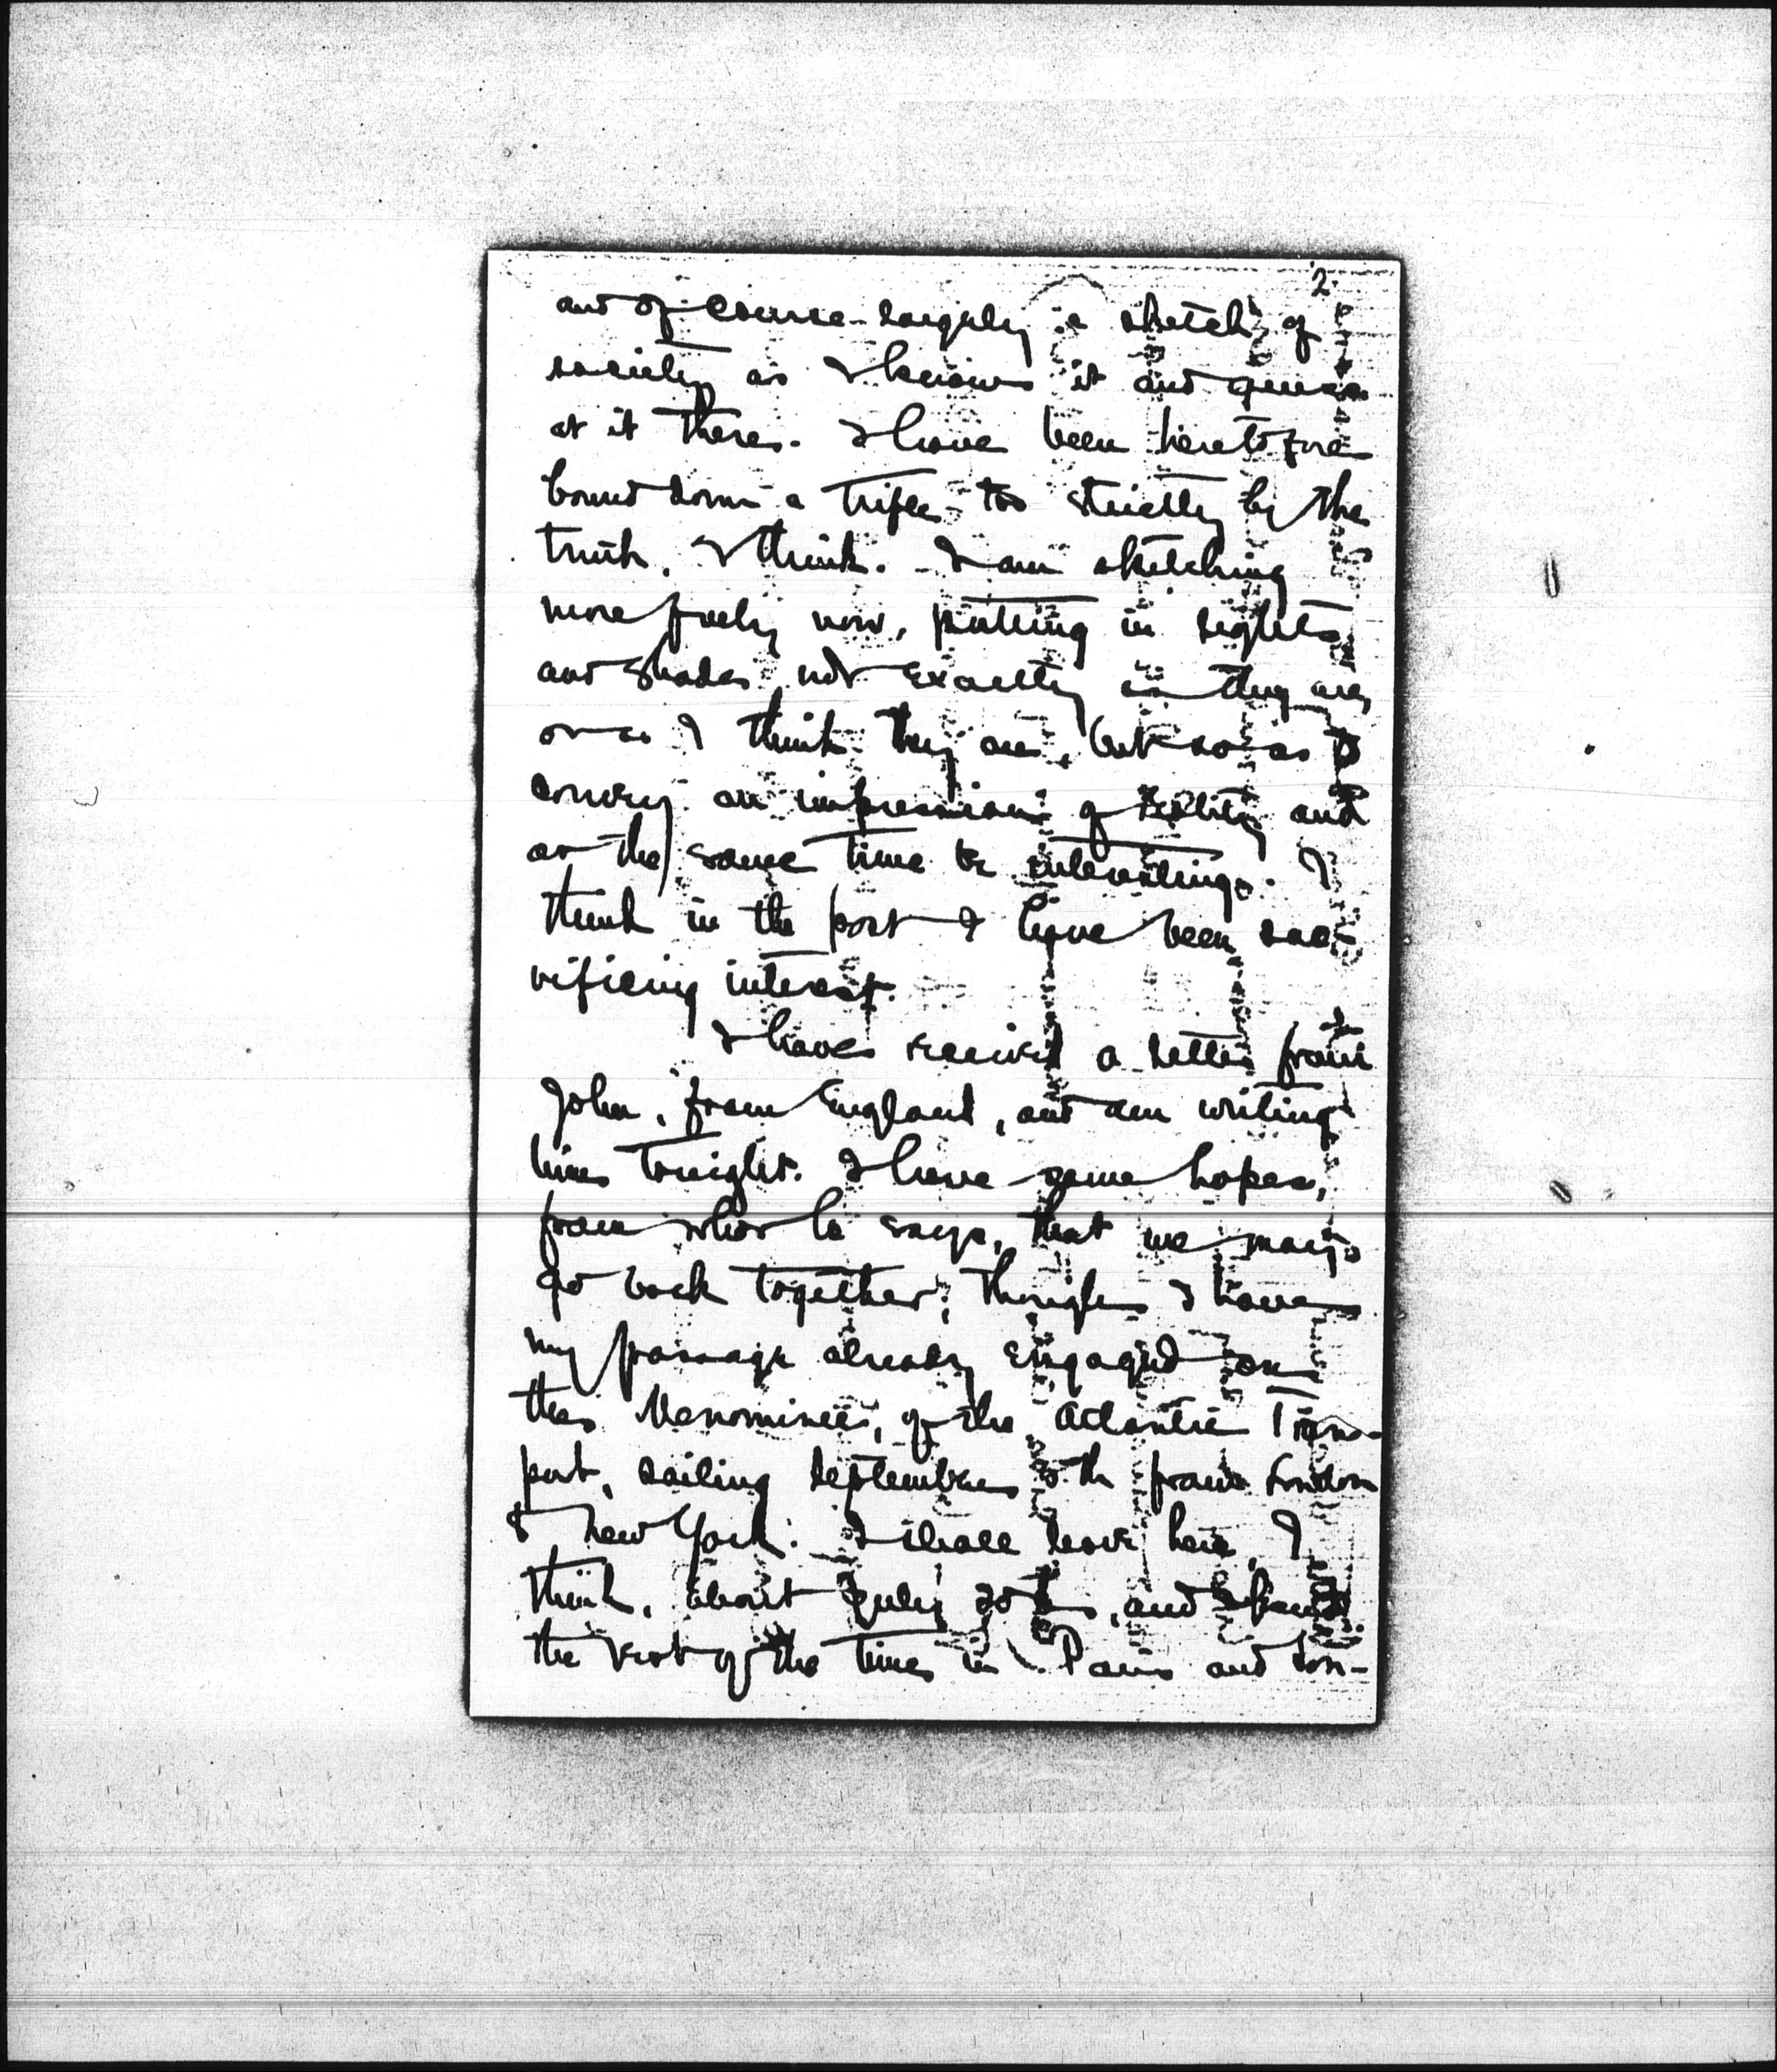 2.
and of course largely a sketch of
society as I know it and guess
at it there. I have been heretofore
bound down a trifle too strictly by the
truth, I think. I am sketching
more freely now, putting in lights
and shades not exactly as they are,
or as I think they are, but so as to
convey an impression of reality and
at the same time be interesting. I
think in the past I have been sac-
rificing interest.
I have received a letter from
John, from England, and am writing
him tonight. I have some hopes,
from what he says, that we may
go back together; though I have
my passage already engaged on
the Menominee, of the Atlantic Trans-
port, sailing September th from London
to New York. I shall leave here, I
think, about July 20th, and spend
the rest of the time in Paris and Lon-